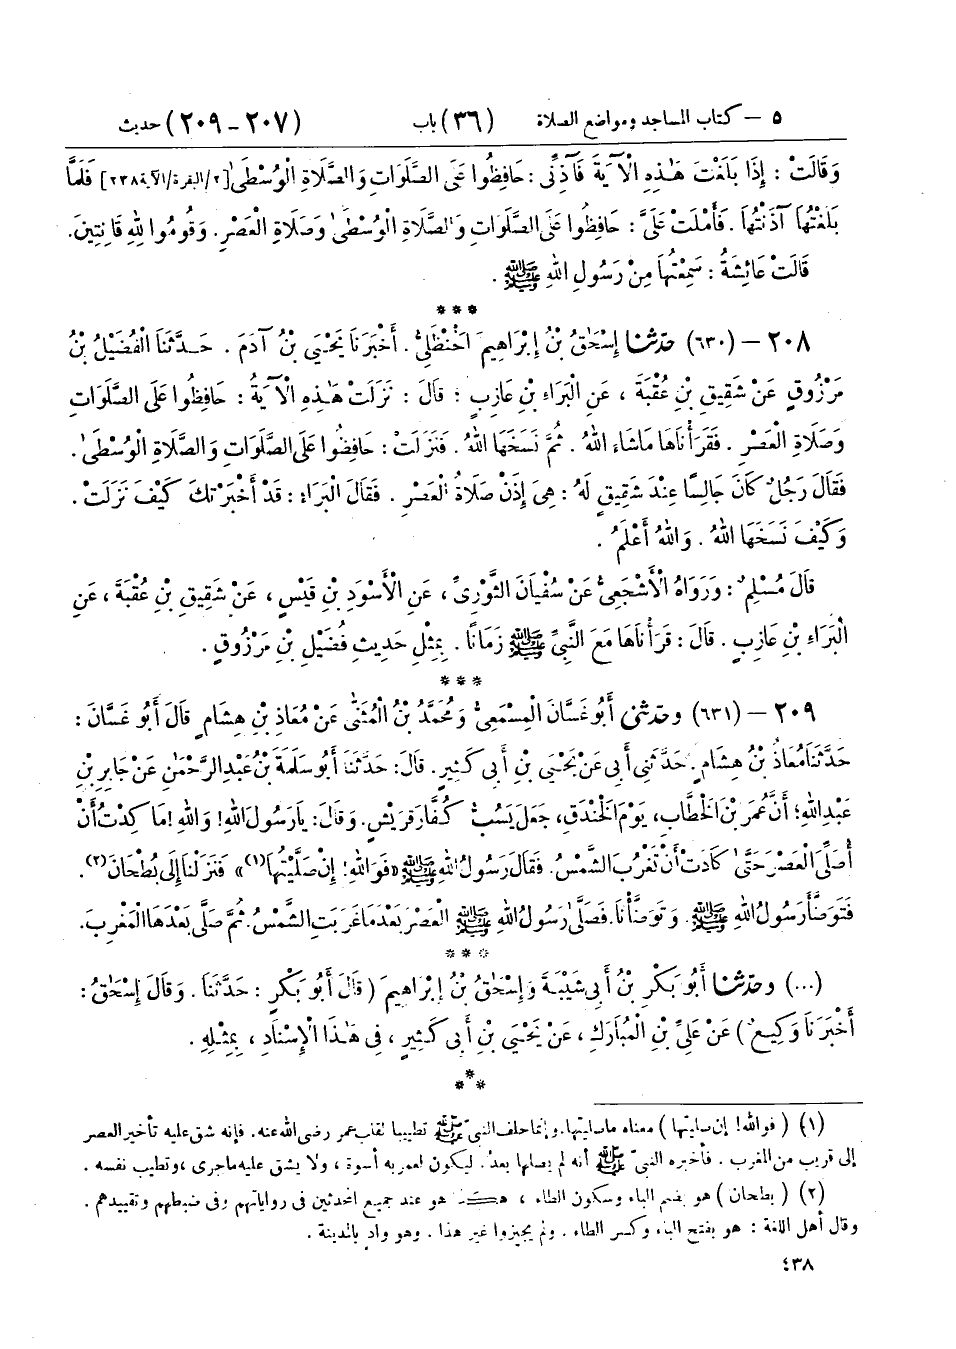 ٥ – كتاب المساجد ومواضع الصلاة (٣٦) باب (٢٠٧-٢٠٩) حديث
وَقَالَتْ : إِذَا بَلَغْتَ هَٰذِهِ الْآيَةَ فَآذِنِّي : حَافِظُوا عَلَى الصَّلَوَاتِ وَالصَّلَاةِ الْوُسْطَىٰ [٢/البقرة/الآية ٢٣٨] فَلَمَّا
بَلَغْتُهَا آذَنْتُهَا . فَأَمْلَتْ عَلَيَّ : حَافِظُوا عَلَى الصَّلَوَاتِ وَالصَّلَاةِ الْوُسْطَىٰ وَصَلَاةِ الْعَصْرِ . وَقُومُوا لِلهِ قَانِتِينَ .
قَالَتْ عَائِشَةُ : سَمِعْتُهَا مِنْ رَسُولِ اللهِ ﷺ .
***
٢٠٨ – (٦٣٠) حَدَّثَنَا إِسْحَاقُ بْنُ إِبْرَاهِيمَ الْحَنْظَلِيُّ . أَخْبَرَنَا يَحْيَى بْنُ آدَمَ . حَدَّثَنَا الْفُضَيْلُ بْنُ
مَرْزُوقٍ عَنْ شَقِيقِ بْنِ عُقْبَةَ ، عَنِ الْبَرَاءِ بْنِ عَازِبٍ ؛ قَالَ : نَزَلَتْ هَٰذِهِ الْآيَةُ : حَافِظُوا عَلَى الصَّلَوَاتِ
وَصَلَاةِ الْعَصْرِ . فَقَرَأْنَاهَا مَا شَاءَ اللهُ . ثُمَّ نَسَخَهَا اللهُ . فَنَزَلَتْ : حَافِظُوا عَلَى الصَّلَوَاتِ وَالصَّلَاةِ الْوُسْطَىٰ .
فَقَالَ رَجُلٌ كَانَ جَالِسًا عِنْدَ شَقِيقٍ لَهُ : هِيَ إِذَنْ صَلَاةُ الْعَصْرِ . فَقَالَ الْبَرَاءُ : قَدْ أَخْبَرْتُكَ كَيْفَ نَزَلَتْ .
وَكَيْفَ نَسَخَهَا اللهُ . وَاللهُ أَعْلَمُ .
قَالَ مُسْلِمٌ : وَرَوَاهُ الْأَشْجَعِيُّ عَنْ سُفْيَانَ الثَّوْرِيِّ ، عَنِ الْأَسْوَدِ بْنِ قَيْسٍ ، عَنْ شَقِيقِ بْنِ عُقْبَةَ ، عَنِ
الْبَرَاءِ بْنِ عَازِبٍ . قَالَ : قَرَأْنَاهَا مَعَ النَّبِيِّ ﷺ زَمَانًا . بِمِثْلِ حَدِيثِ فُضَيْلِ بْنِ مَرْزُوقٍ .
***
٢٠٩ – (٦٣١) وَحَدَّثَنِي أَبُو غَسَّانَ الْمِسْمَعِيُّ وَمُحَمَّدُ بْنُ الْمُثَنَّى عَنْ مُعَاذِ بْنِ هِشَامٍ قَالَ أَبُو غَسَّانَ :
حَدَّثَنَا مُعَاذُ بْنُ هِشَامٍ . حَدَّثَنِي أَبِي عَنْ يَحْيَى بْنِ أَبِي كَثِيرٍ . قَالَ : حَدَّثَنَا أَبُو سَلَمَةَ بْنُ عَبْدِ الرَّحْمَٰنِ عَنْ جَابِرِ بْنِ
عَبْدِ اللهِ ؛ أَنَّ عُمَرَ بْنَ الْخَطَّابِ ، يَوْمَ الْخَنْدَقِ ، جَعَلَ يَسُبُّ كُفَّارَ قُرَيْشٍ . وَقَالَ : يَا رَسُولَ اللهِ ! وَاللهِ ! مَا كِدْتُ أَنْ
أُصَلِّيَ الْعَصْرَ حَتَّىٰ كَادَتْ أَنْ تَغْرُبَ الشَّمْسُ . فَقَالَ رَسُولُ اللهِ ﷺ «فَوَاللهِ ! إِنْ صَلَّيْتُهَا(١)» فَنَزَلْنَا إِلَى بُطْحَانَ(٢) .
فَتَوَضَّأَ رَسُولُ اللهِ ﷺ . وَتَوَضَّأْنَا . فَصَلَّىٰ رَسُولُ اللهِ ﷺ الْعَصْرَ بَعْدَ مَا غَرَبَتِ الشَّمْسُ . ثُمَّ صَلَّى بَعْدَهَا الْمَغْرِبَ .
***
(...) وَحَدَّثَنَا أَبُو بَكْرِ بْنُ أَبِي شَيْبَةَ وَإِسْحَاقُ بْنُ إِبْرَاهِيمَ ( قَالَ أَبُو بَكْرٍ : حَدَّثَنَا . وَقَالَ إِسْحَاقُ :
أَخْبَرَنَا وَكِيعٌ ) عَنْ عَلِيِّ بْنِ الْمُبَارَكِ ، عَنْ يَحْيَى بْنِ أَبِي كَثِيرٍ ، فِي هَٰذَا الْإِسْنَادِ ، بِمِثْلِهِ .
***
(١) ( فوالله! إن صليتها ) معناه ما صليتها. وإنما حلف النبيّ ﷺ تطييبا لقلب عمر رضى الله عنه. فإنه شق عليه تأخير العصر
إلى قريب من المغرب . فأخبره النبيّ ﷺ أنه لم يصلها بعدُ. ليكون لعمر به أسوة ، ولا يشق عليه ما جرى ، وتطيب نفسه .
(٢) ( بطحان ) هو بضم الباء وسكون الطاء ، هكذا هو عند جميع المحدثين فى رواياتهم وفى ضبطهم وتقييدهم .
وقال أهل اللغة : هو بفتح الباء وكسر الطاء . ولم يجيزوا غير هذا . وهو وادٍ بالمدينة .
٤٣٨